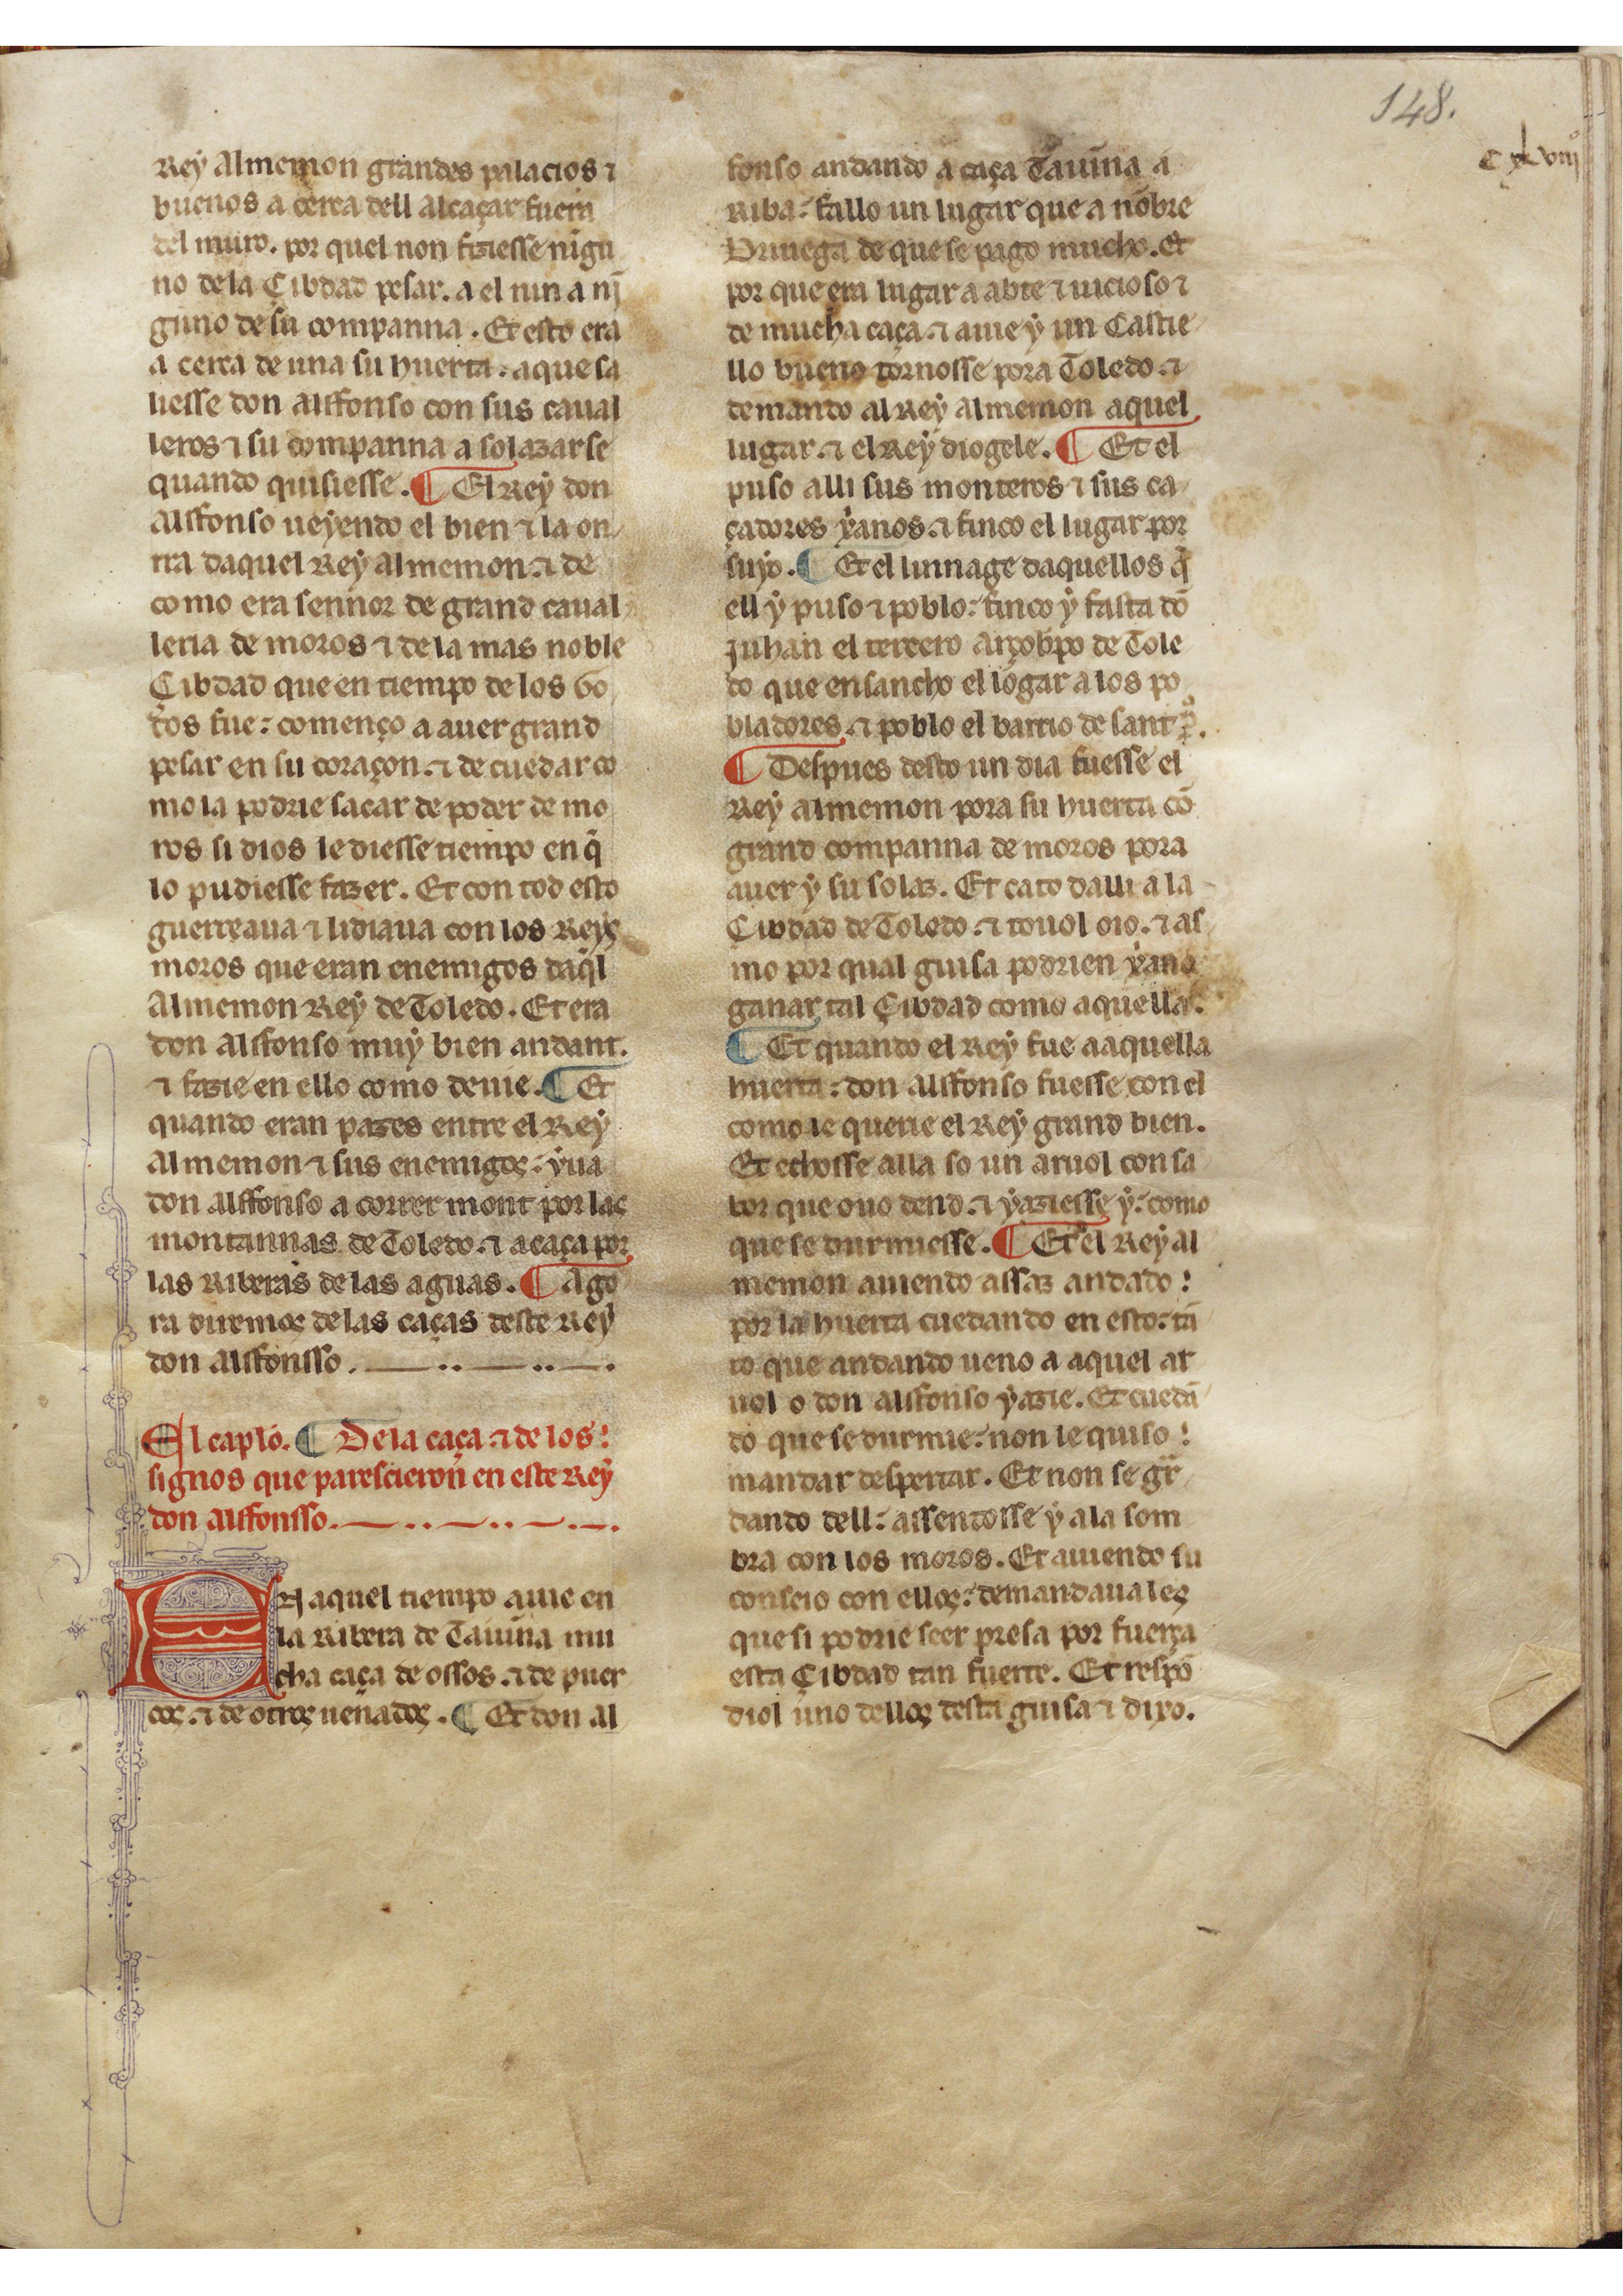 148.
Cxlviijº
Rey Almemon grandes palacios ⁊
buenos a cerca dell alcaçar fuera
del muro. por quel non fiziesse nigu
no dela Çibdad pesar. a el nin a nj
guno de su companna. Et esto era
a cerca de una su huerta. a que sa
liesse don alffonso con sus caual
leros ⁊ su companna a solazar se
quando quisiesse. ¶ El Rey don
Alffonso ueyendo el bien ⁊ la on
rra daquel Rey Almemon. ⁊ de
como era sennor de grand caual
leria de moros ⁊ de la mas noble
Çibdad que en tiempo de los Go
dos fue: començo a auer grand
pesar en su coraçon. ⁊ de cuedar co
mo la podrie sacar de poder de mo
ros si dios le diesse tiempo en q̄
lo pudiesse fazer. Et con tod esto
guerreaua ⁊ lidiaua con los Reyes
moros que eran enemigos daq̄l
Almemon Rey de Toledo. Et era
don Alffonso muy bien andant.
⁊ fazie en ello como deuie. ¶ Et
quando eran pazes entre el Rey
Almemon ⁊ sus enemigos: yua
don Alffonso a correr mont por las
montannas de Toledo. ⁊ a caça por
las Riberas de las aguas. ¶ Ago
ra diremos de las caças deste Rey
don Alffonsso.
El caplo. ¶ De la caça. ⁊ de los
signos que parescieron en este Rey
don Alffonsso.
EN aquel tiempo auie en
la Ribera de Taiuña mu
cha caça de ossos. ⁊ de puer
cos. ⁊ de otros uenados. ¶ Et don Al
fonso andando a caça Taiuña a
Riba: fallo un lugar que a nōbre
Briuega de que se pago mucho. Et
por que era lugar a abte ⁊ uicioso ⁊
de mucha caça. ⁊ auie y un Castie
llo bueno tornosse pora Toledo. ⁊
demando al Rey almemon aquel
lugar. ⁊ el Rey diogele. ¶ Et el
puso alli sus monteros ⁊ sus ca
çadores xp̄anos. ⁊ finco el lugar por
suyo. ¶ Et el linnage daquellos q̄
ell y puso ⁊ poblo: finco y fasta dō
Juhan el tercero arçob̄po de Tole
do que ensancho el logar a los po
bladores. ⁊ poblo el barrio de sant p̄º.
¶ Despues desto un dia fuesse el
Rey almemon pora su huerta cō
grand companna de moros pora
auer y su solaz. Et cato dalli a la
Çibdad de Toledo. ⁊ touol oio. ⁊ as
mo por qual guisa podrien xp̄anos
ganar tal Çibdad como aquella.
¶ Et quando el Rey fue a aquella
huerta: don Alffonso fuesse con el
como le querie el Rey grand bien.
Et echosse alla so un aruol con sa
bor que ouo dend. ⁊ yaziesse y. como
que se durmiesse. ¶ Et el Rey al
memon auiendo assaz andado
por la huerta cuedando en esto: tā
to que andando ueno a aquel ar
uol o don alffonso yazie. Et cuedā
do que se durmie: non le quiso
mandar despertar. Et non se gr̄
dando dell: assentosse y a la som
bra con los moros. Et auiendo su
conseio con ellos: demandaua les
que si podrie seer presa por fuerça
esta Çibdad tan fuerte. Et respō
diol uno dellos desta guisa ⁊ dixo.